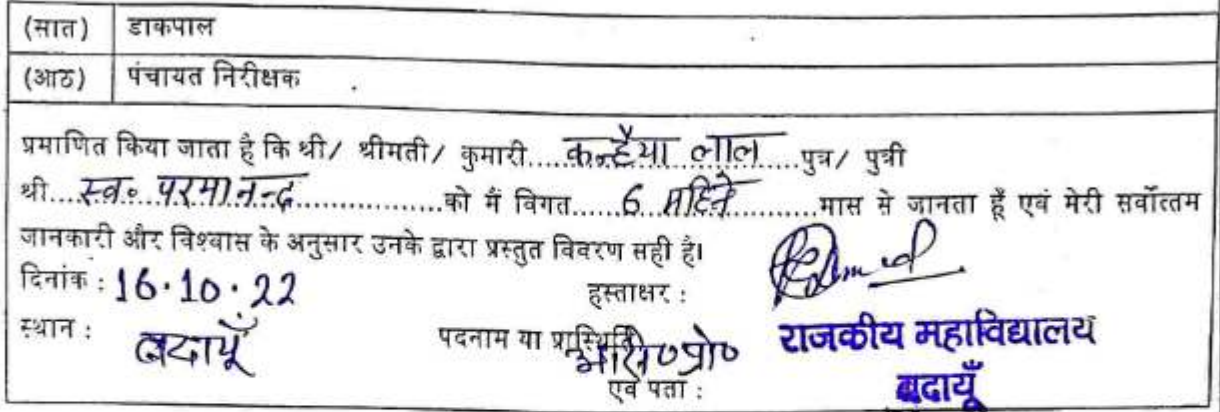 (सात) डाकपाल
(आठ) पंचायत निरीक्षक
प्रमाणित किया जाता है कि श्री/ श्रीमती/ कुमारी.....कन्हैया लाल.....पुत्र/ पुत्री
श्री....स्व० परमानन्द..................को मैं विगत......6 महिने.........मास से जानता हूँ एवं मेरी सर्वोत्तम
जानकारी और विश्वास के अनुसार उनके द्वारा प्रस्तुत विवरण सही है।
दिनांक : 16.10.22 हस्ताक्षर :
स्थान : बदायूँ पदनाम या प्रास्थिति असि०प्रो० राजकीय महाविद्यालय
एवं पता : बदायूँ